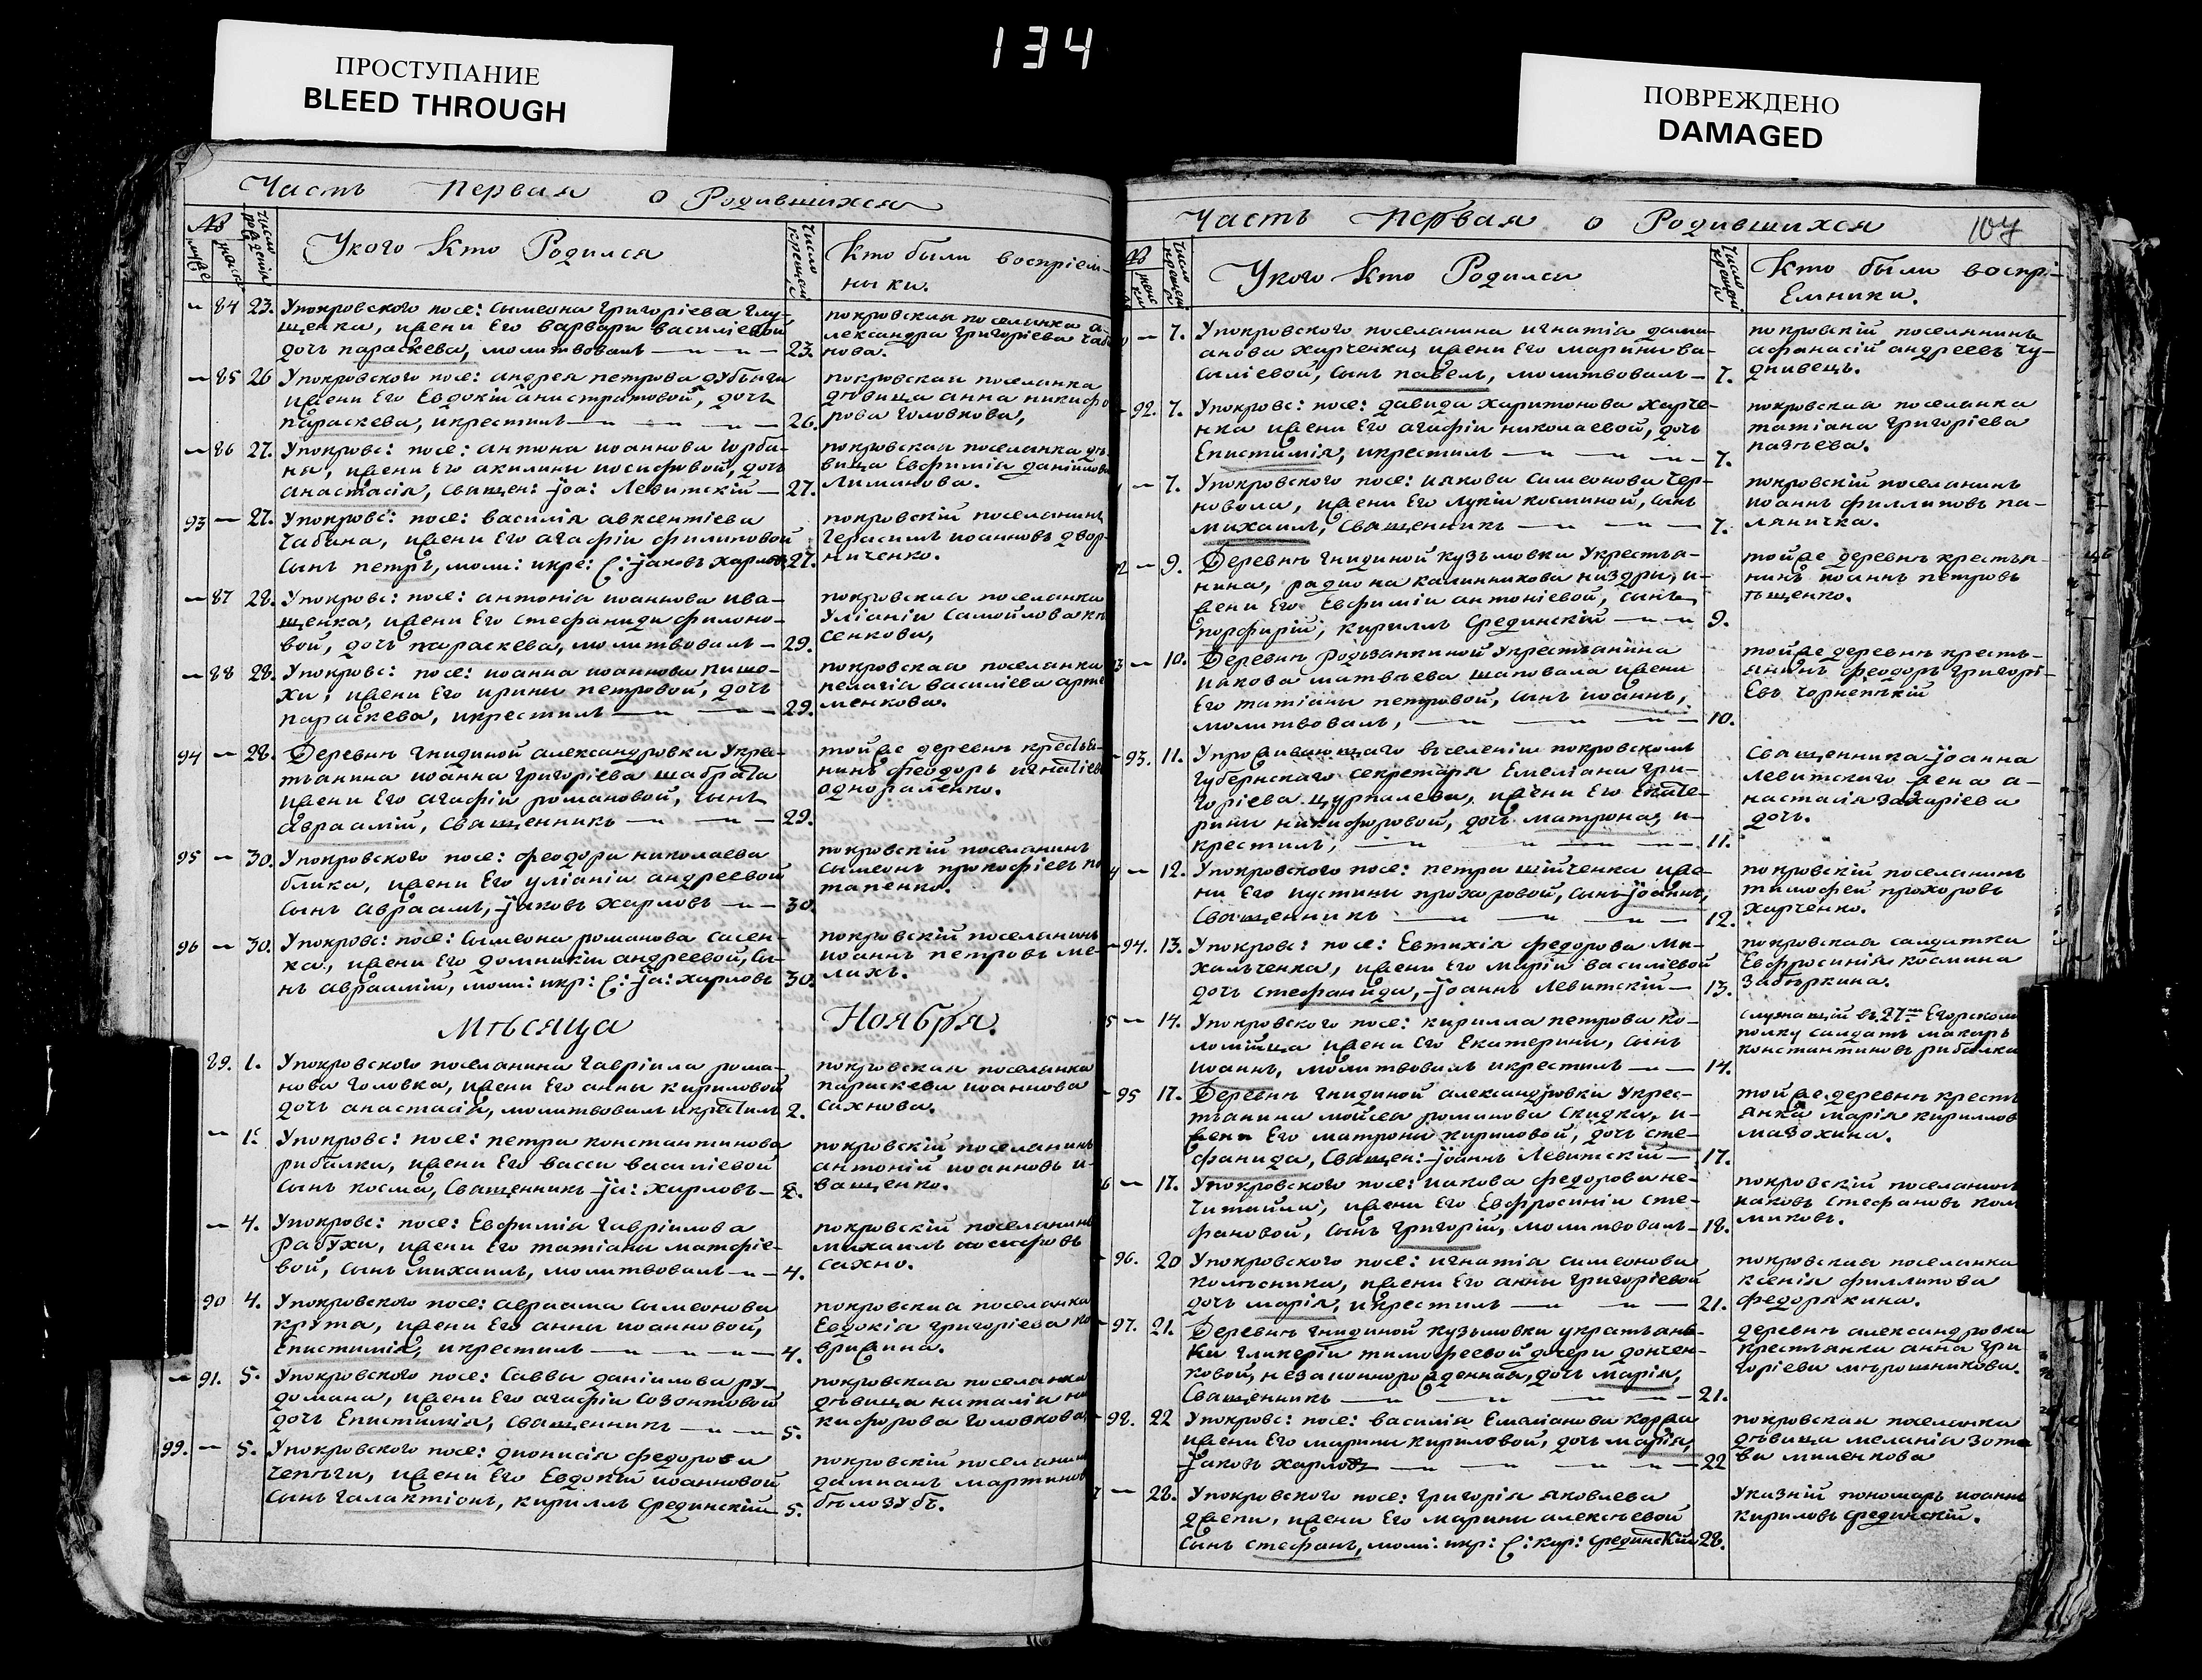 134
ПРОСТУПАНИЕ
BLEED THROUGH
ПОВРЕЖДЕНО
DAMAGED
Часть первая о Родившихся
Укого кто Родился
Кто были воспріем-
ники.
84 23. Упокровского посе: сымеона григоріева глу-
щенка, ижени Его варвари василіевой
дочь параскева, молитвовалъ 23.
покровская поселянка а-
лександра григоріева
нова.
85 26 Упокровского посе: андрея петрова
ижени Его Евдокіи анистратовой, дочь
параскева, икрестилъ 26.
покровская поселянка
дѣвица анна никифо
рова головкова,
86 27. Упокровс: посе: антона иоаннова горба-
ня, ижени Его акилини иосифовой, дочь
анастасія, священ: іоа: Левитскій 27.
покровская поселянка дѣ-
вица Евфимія даніилова
Лиманова.
93 27. Упокровс: посе: василія авксентіева
чабана, ижени Его агафіи филиповой
сынъ петръ, моли: икре: С: іаковъ харловъ 27.
покровскій поселянинъ
герасимъ иоанновъ двор-
ниченко.
87 28. Упокровс: посе: антонія иоаннова ива-
щенка, ижени Его стефаниди филимо-
вой, дочь параскева, молитвовалъ 29.
покровская поселянка
Уліанія самойлова
сенкова,
88 28. Упокровс: посе: иоанна иоаннова
хи, ижени Его ирини петровой, дочь
параскева, икрестилъ 29.
покровская поселянка
пелагія василіева арте
менкова.
94 28. Деревнѣ гнидиной александровки Укре-
стьянина иоанна григоріева шабрата
ижени Его агафіи романовой, сынъ
Авраамій, священникъ 29.
тойже деревнѣ крестья-
нинъ феодоръ игнатіевъ
одораленко.
95 30. Упокровского посе: феодора николаева
блика, ижени Его уліаніи андреевой
сынъ авраамъ, іаковъ харловъ 30.
покровскій поселянинъ
сымеонъ прокофіевъ по
тапенко.
96 30. Упокровс: посе: сымеона романова сасен-
ка, ижени Его домникіи андреевой, сы-
нъ авраамій, моли: икр: С: іа: харловъ 30.
покровскій поселянинъ
иоаннъ петровъ ме-
лихъ.
Мѣсяца Ноября.
89. 1. Упокровского поселянина гавріила рома-
нова головка, ижени Его анны кириловой
дочь анастасія, молитвовалъ икрестилъ 2.
покровская поселянка
параскева иоаннова
сахнова.
1. Упокровс: посе: петра константинова
рибалки, ижени Его васси василіевой
сынъ косма, священникъ іа: харловъ 2.
покровскій поселянинъ
антоній иоанновъ и-
ващенко.
4. Упокровс: посе: Евфимія гавріилова
Рабухи, ижени Его татіаны матфіе-
вой, сынъ михаилъ, молитвовалъ 4.
покровскій поселянинъ
михаилъ иосифовъ
сахно.
90 4. Упокровского посе: авраама сымеонова
крута, ижени Его анны иоанновой,
Епистимія, икрестилъ 4.
покровская поселянка
Евдокія григоріева ко
врижина.
91. 5. Упокровского посе: Саввы даніилова ру-
домана, ижени Его агафіи созонтовой
дочь Епистимія, священникъ 5.
покровская поселянка
дѣвица наталія ни
кифорова головкова,
99. 5. Упокровского посе: дионисія федорова
чепѣги, ижени Его Евдокіи иоанновой
сынъ галактіонъ, кириллъ срединскій 5.
покровскій поселянинъ
даміанъ мартиновъ
бѣлозубъ.
Часть первая о Родившихся
Укого кто Родился
Кто были воспрі-
Емники.
7. Упокровского поселянина игнатія дами-
анова харченка, ижени Его марини ва-
силіевой, сынъ павелъ, молитвовалъ 7.
покровскій поселянинъ
афанасій андреевъ чу-
днивецъ.
92. 7. Упокровс: посе: давида харитонова харче-
нка ижени Его агафіи николаевой, дочь
Епистимія, икрестилъ 7.
покровская поселянка
татіана григоріева
7. Упокровского посе: иакова симеонова чер-
новола, ижени Его лукіи косминой, сынъ
михаилъ, священникъ 7.
покровскій поселянинъ
иоаннъ филлиповъ па-
ляничка.
9. Деревнѣ гнидиной кузьмовки Укрестья-
нина, родиона калинникова низдри, и-
жени Его Евфиміи антоніевой, сынъ
порфирій, кириллъ срединскій 9.
тойже деревнѣ крестья-
нинъ иоаннъ петровъ
10. Деревнѣ Родзянкиной Укрестьянина
иакова матвѣева шаповала ижени
Его татіаны петровой, сынъ иоаннъ,
молитвовалъ, 10.
тойже деревнѣ кресть-
янинъ феодоръ григорі-
Евъ
93. 11. Упроживающаго вѣселеніи покровскомъ
губернскаго секретаря Емеліана гри-
горіева цурпалева, ижени Его Екате-
рины никифоровой, дочь матрона, и-
крестилъ, 11.
Священника іоанна
Левитскаго жена а-
настасія захаріева
дочь.
12. Упокровского посе: петра шійченка иже-
ни Его иустини прохоровой, сынъ іоаннъ,
священникъ 12.
покровскій поселянинъ
тимофей прохоровъ
харченко.
94. 13. Упокровс: посе: Евтихія федорова ми-
хальченка, ижени Его маріи василіевой
дочь стефанида, іоаннъ Левитскій 13.
покровская салдатка
Евфросинія космина
Забѣркина.
14. Упокровского посе: кирилла петрова ко-
ломійца ижени Его Екатерины, сынъ
иоаннъ, молитвовалъ икрестилъ 14.
служащій въ 27мъ Егорскомъ
полку салдатъ макаръ
константиновъ рибалка
95 17. Деревнѣ гнидиной александровки Укрес-
тьянина мойсея романова скидка, и-
жени Его матроны кириловой, дочь сте-
фанида, священ: іоаннъ Левитскій 17.
тойже деревнѣ кресть
янка марія кирилов
мазохина.
17. Упокровского посе: иакова федорова не-
читайла, ижени Его Евфросиніи сте-
фановой, сынъ григорій, молитвовалъ 18.
покровскій поселянинъ
иаковъ стефановъ
96. 20 Упокровского посе: игнатія симеонова
колѣсника, ижени Его анны григоріевой
дочь марія, икрестилъ 21.
покровская поселянка
ксенія филлипова
федорякина.
97. 21. Деревнѣ гнидиной кузьмовки укрестьян-
ки гликеріи тимофеевой дочери дончен-
ковой, незаконнорожденная, дочь марія,
священникъ 21.
деревнѣ александровки
крестьянка анна гри
горіева мѣрошникова.
98. 22 Упокровс: посе: василія Емеліанова коржа
ижени Его марини кириловой, дочь марія,
іаковъ харловъ 22
покровская поселянка
дѣвица меланія зоте
ва миленкова
28. Упокровского посе: григорія яковлева
ижени Его марини алексѣевой
сынъ стефанъ, моли: икр: С: кир: срединскій 28.
Указній пономарь иоаннъ
кириловъ срединскій.